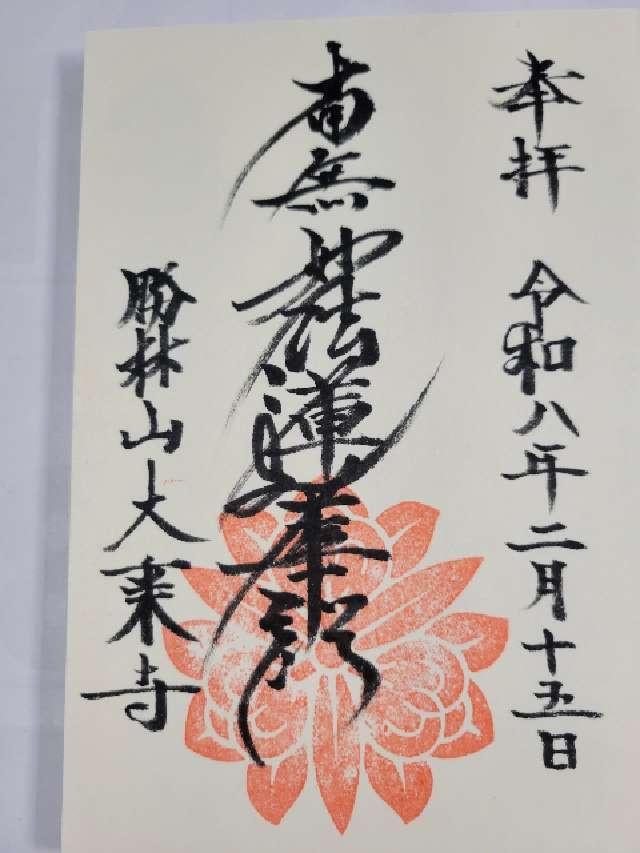 奉拝 令和八年二月十五日
南無妙法蓮華経
勝林山大乗寺